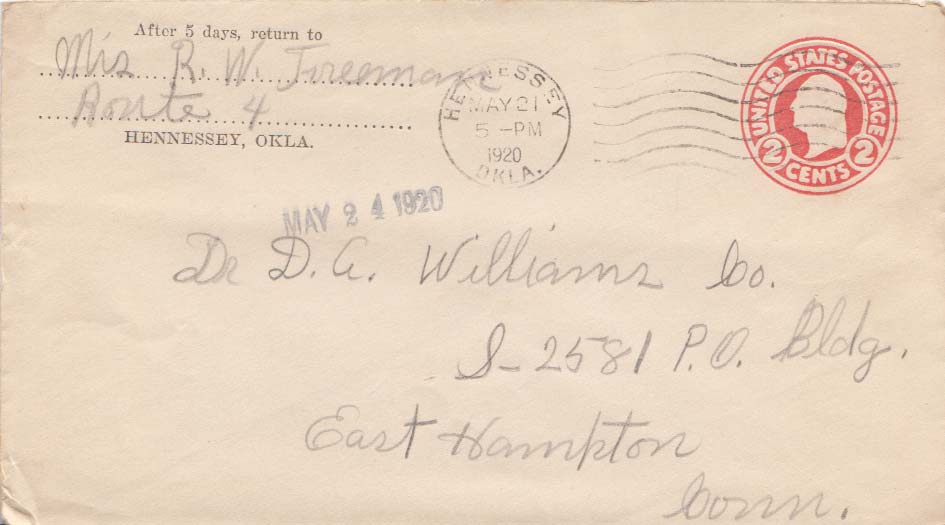 After 5 days, return to
Mrs R. W. Freeman
Route 4
HENNESSEY, OKLA.
HENNESSEY
MAY 21
5 -PM
1920
OKLA.
UNITED STATES POSTAGE
2 CENTS 2
MAY 24 1920
Dr D. A. Williams Co.
S-2581 P.O. Bldg.
East Hampton
Conn.